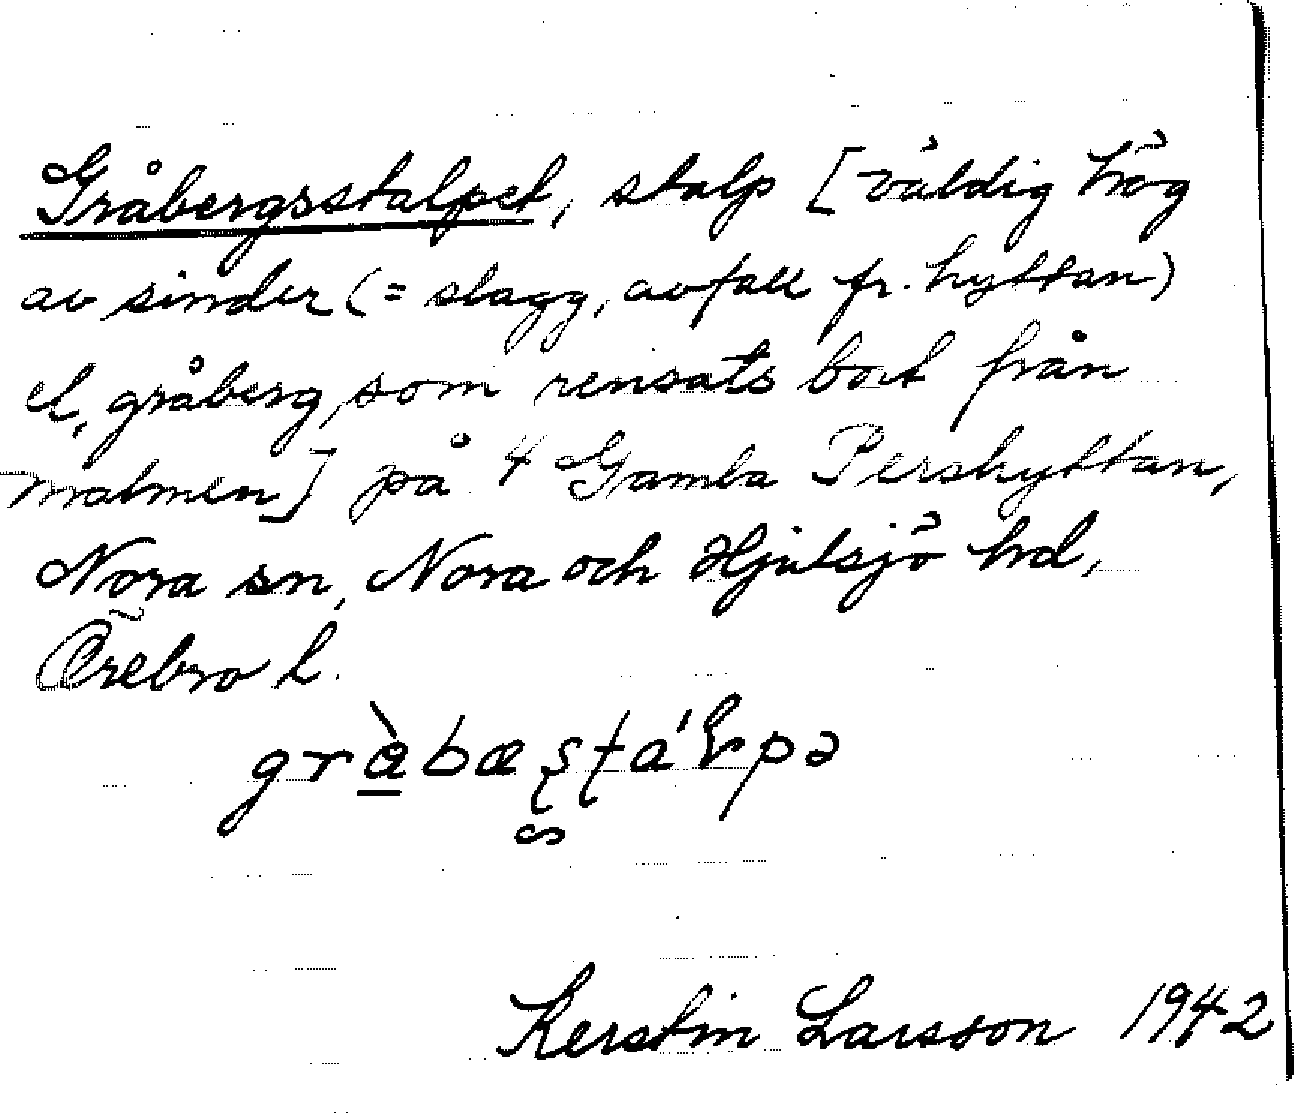 Gråbergsstalpet, stalp [väldig hög
av sinder (= slagg, avfall fr. hyttan)
el. gråberg, som rensats bort från
malmen] på 4 Gamla Pershyttan,
Nora sn, Nora och Hjulsjö hd,
Örebro l.
Kerstin Larsson 1942